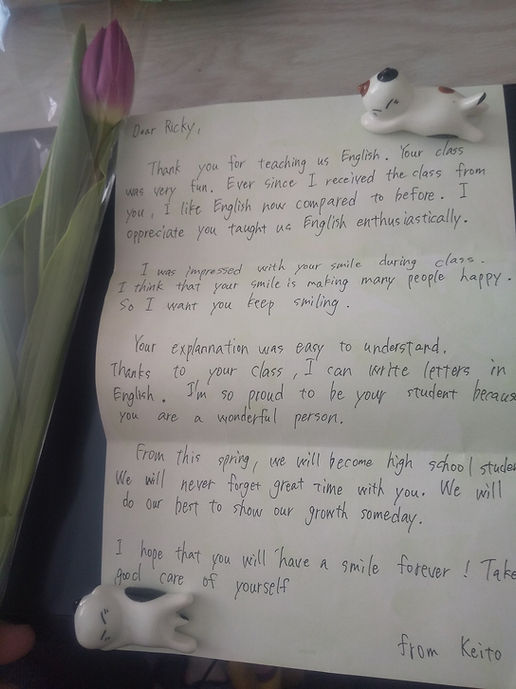 Dear Ricky,
Thank you for teaching us English. Your class
was very fun. Ever since I received the class from
you, I like English now compared to before. I
appreciate you taught us English enthusiastically.
I was impressed with your smile during class.
I think that your smile is making many people happy.
So I want you keep smiling.
Your explannation was easy to understand.
Thanks to your class, I can write letters in
English. I'm so proud to be your student because
you are a wonderful person.
From this spring, we will become high school studen
We will never forget great time with you. We will
do our best to show our growth someday.
I hope that you will have a smile forever! Take
good care of yourself
from Keito